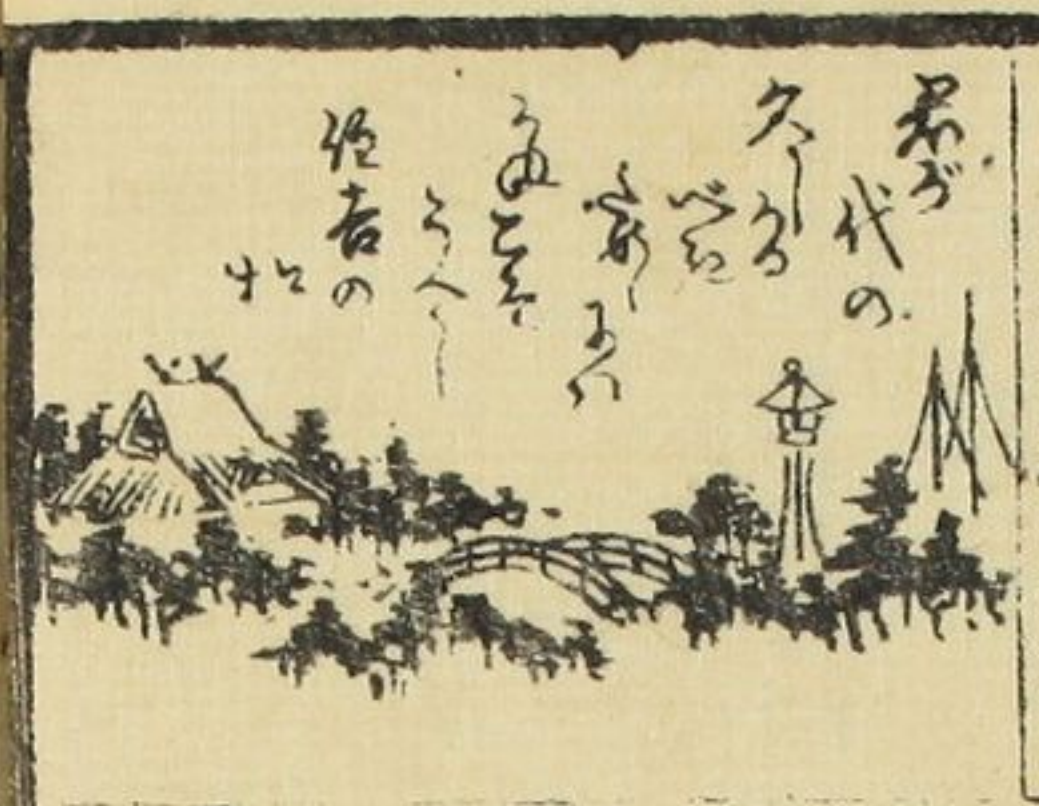 君が
代の
久しかる
べき
ためしには
かねてぞ
うへし
住吉の
松